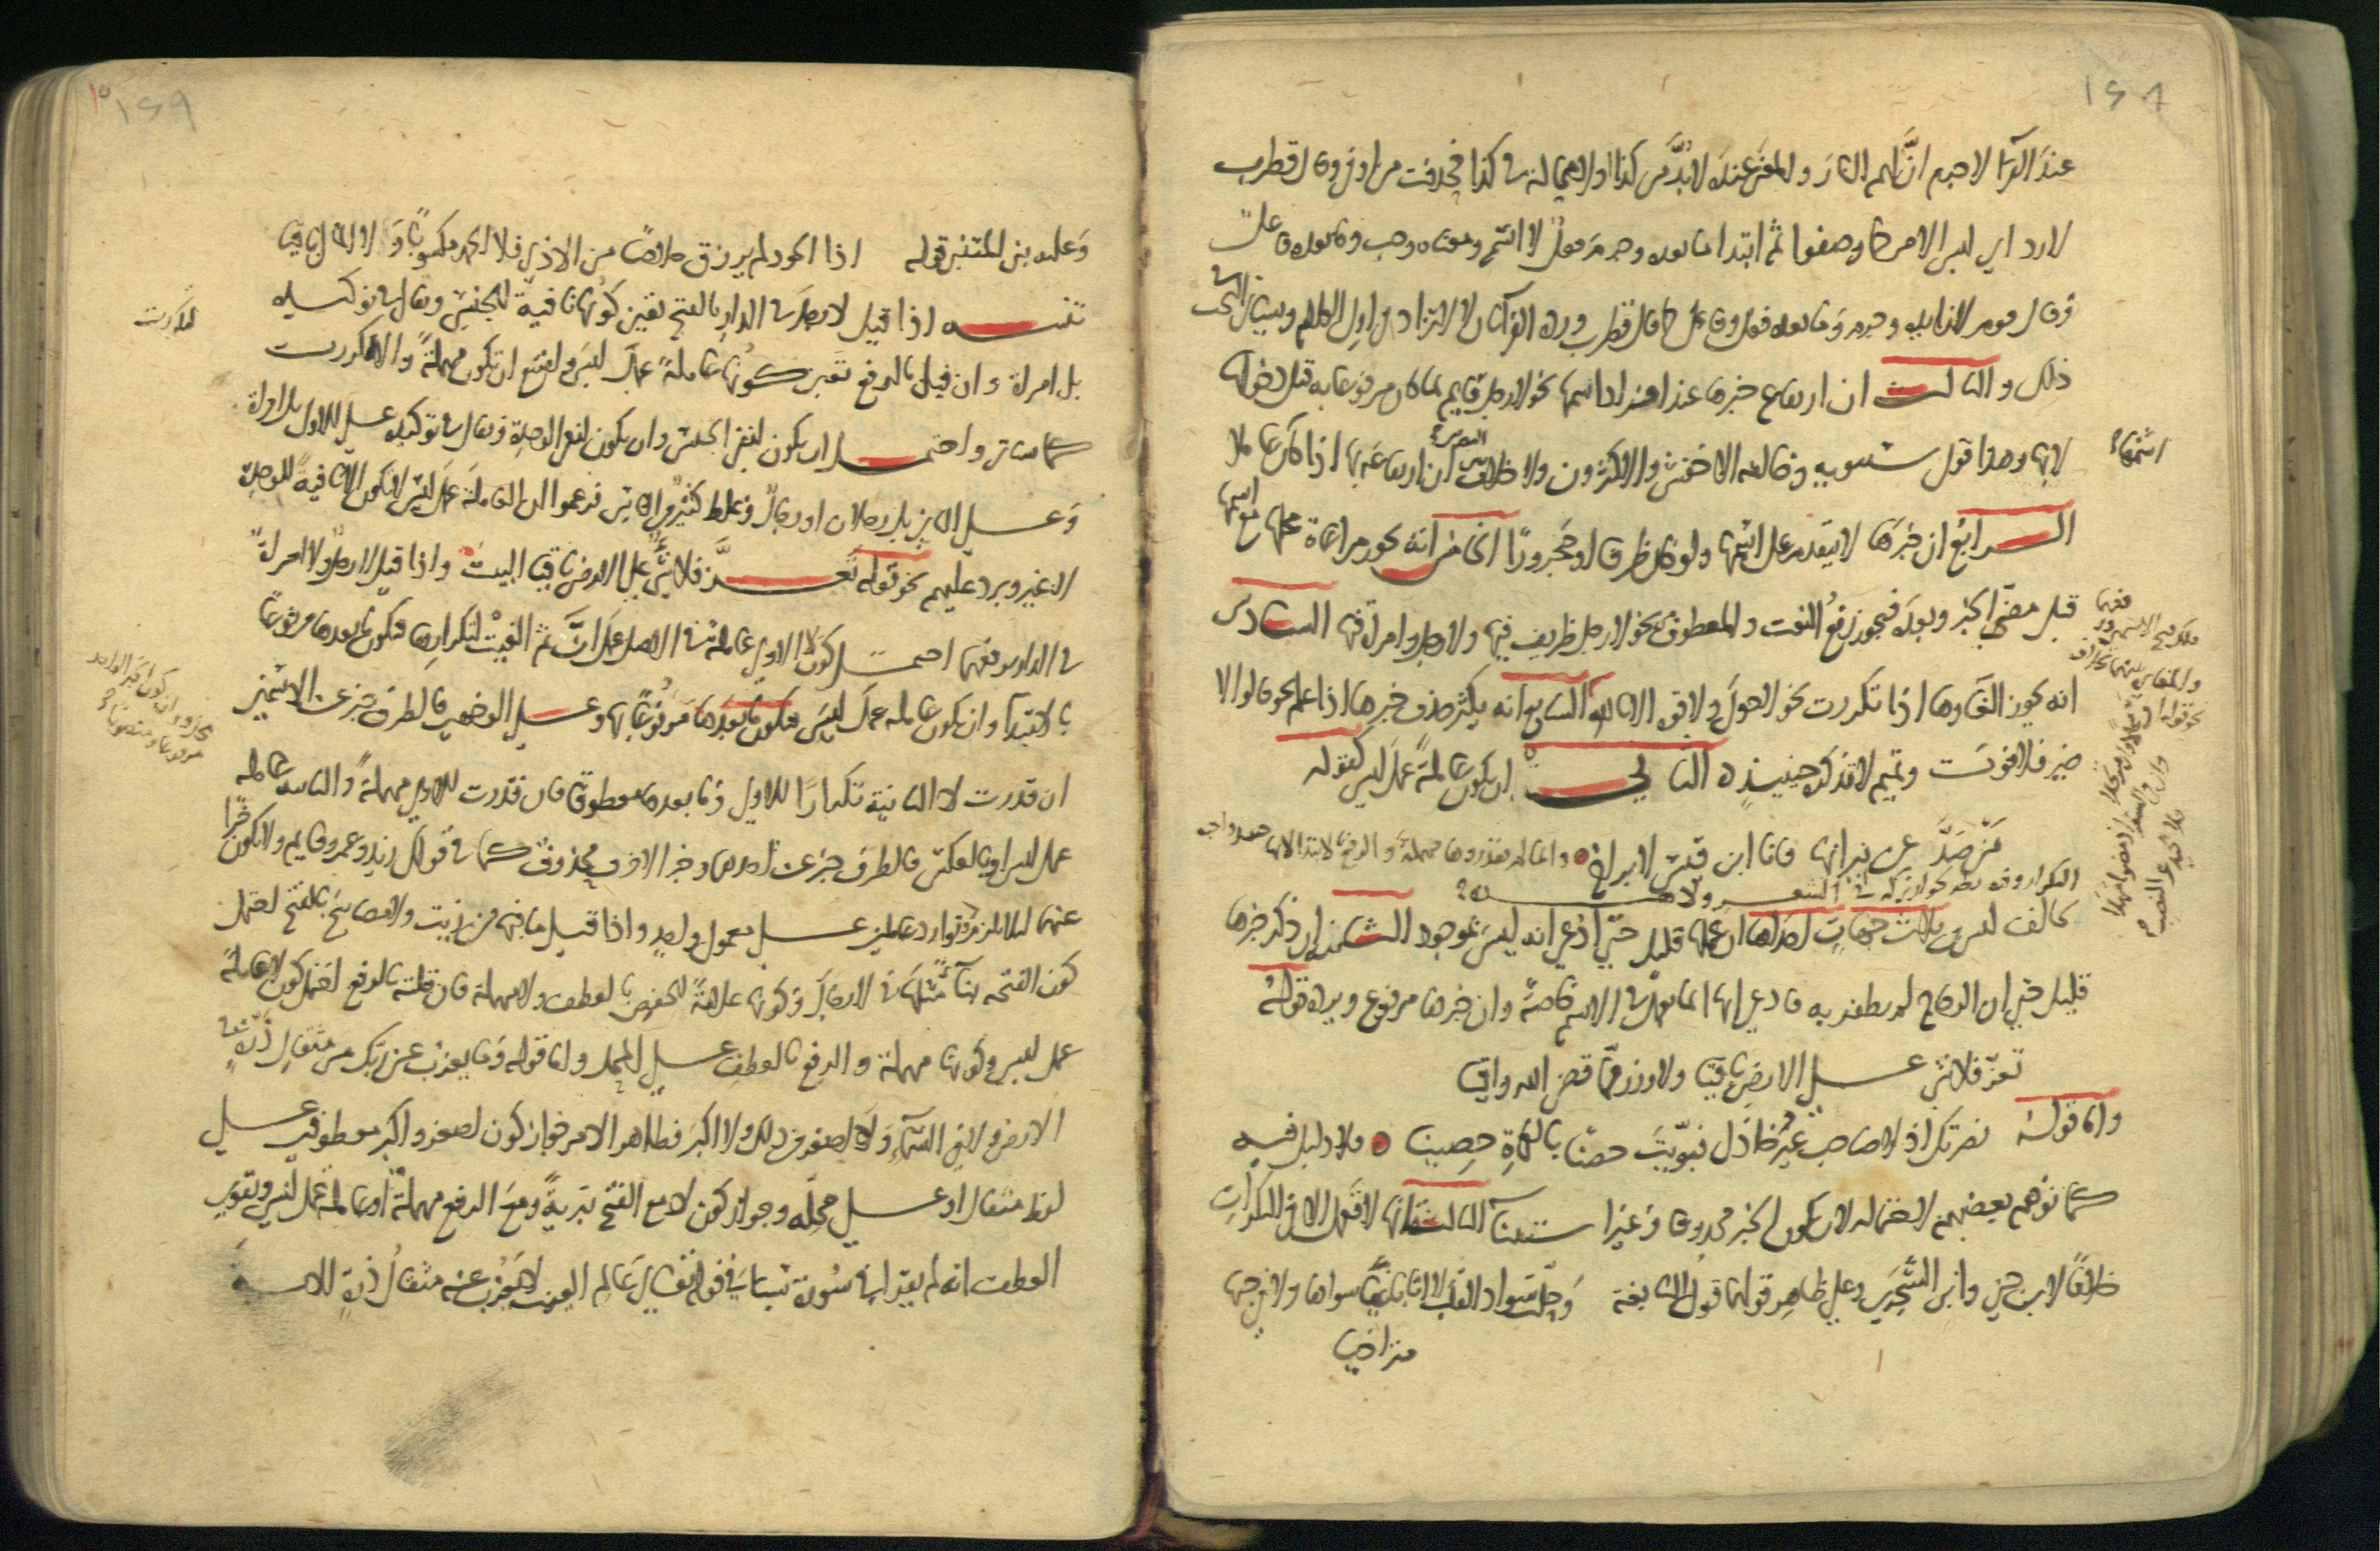 ١٤٨
عند الفراء لا جرم ان لهم النار والمعنى عنده لا بد من كذا او لا محالة في كذا فحذفت من او في وقال قطرب
لا رد اي ليس الامر كما وصفوا ثم ابتدا ما بعده وجرم فعل لا اسم ومعناه وجب وما بعده فاعل
وقال قوم لا زايدة وجرم وما بعده فعل وفاعل كما قال قطرب ورده الفرا بان لا لا تزاد في اول الكلام وسياتي البحث في
ذلك والثالث ان ارتفاع خبرها عند افراد اسمها نحو لا رجل قايم بما كان مرفوعا به قبل دخولها
لا بها وهذا قول سيبويه وخالفه الاخفش والاكثرون ولا خلاف بين البصريين ان ارتفاعه بها اذا كان عاملا
الرابع ان خبرها لا يتقدم على اسمها ولو كان ظرفا او مجرورا الخامس انه يجوز مراعاة محلها مع اسمها
قبل مضي الخبر وبعده فيجوز رفع النعت والمعطوف نحو لا رجل ظريف فيها ولا رجل وامراة فيها السادس
انه يجوز الغاوها اذا تكررت نحو لا حول ولا قوة الا بالله السابع انه يكثر حذف خبرها اذا علم نحو قالوا لا
ضير فلا فوت وتميم لا تذكره حينيذ الثاني ان يكون عاملة عمل ليس كقوله
من صد عن نيرانها فانا ابن قيس لا براح
وانما لم يقدروها مهملة والرفع بالابتدا لانها حينيذ واجبة
التكرار وفيه نظر لجواز تركه في الشعر ولا هذه
تخالف ليس من ثلاث جهات احداها ان عملها قليل حتى ادعي انه ليس بموجود الثانية ان ذكر خبرها
قليل حتى ان الزجاج لم يظفر به فادعى انها انما تعمل في الاسم خاصة وان خبرها مرفوع ويرده قوله
تعز فلا شي على الارض باقيا ولا وزر مما قضى الله واقيا
واما قوله نصرتك اذ لا صاحب غير خاذل فبويت حصنا بالكماة حصينا فلا دليل فيه
كما توهم بعضهم لاحتماله لان يكون الخبر محذوفا وغير استثناء الثالثة انها لا تعمل الا في النكرات
خلافا لابن جني وابن الشجري وعلى ظاهر قولهما قول النابغة وحلت سواد القلب لا انا باغيا سواها ولا في حبها
متراخيا
١٤٩
وعليه بنى المتنبي قوله اذا الجود لم يرزق خلاصا من الاذى فلا الحمد مكسوبا ولا المال باقيا
تنبيه اذا قيل لا رجل في الدار بالفتح تعين كونها نافية للجنس ويقال في توكيده
بل امراة وان قيل بالرفع تعين كونها عاملة عمل ليس وامتنع ان تكون مهملة والا لكررت
كما سياتي واحتمل ان يكون لنفي الجنس وان يكون لنفي الوحدة ويقال في توكيده على الاول بل امراة
وعلى الثاني بل رجلان او رجال وغلط كثير من الناس فزعموا ان العاملة عمل ليس لا تكون الا نافية للوحدة
لا غير ويرد عليهم نحو قوله تعز فلا شي على الارض باقيا البيت واذا قيل لا رجل ولا امراة
في الدار برفعهما احتمل كون لا الاولى عاملة في الاصل عمل ان ثم الغيت لتكرارها فيكون ما بعدها مرفوعا
بالابتدا وان يكون عاملة عمل ليس فيكون ما بعدها مرفوعا بها وعلى الوجهين فالظرف خبر عن الاسمين
ان قدرت لا الثانية تكرارا للاولى وما بعدها معطوفا فان قدرت الاولى مهملة والثانية عاملة
عمل ليس او بالعكس فالظرف خبر عن احدهما وخبر الاخرى محذوف كما في قولك زيد وعمرو قايم ولا يكون خبرا
عنهما ليلا يلزم توارد عاملين على معمول واحد واذا قيل ما فيها من زيت ولا مصابيح بالفتح احتمل
كون الفتحة بناء مثلها في لا رجال وكونها علامة للخفض بالعطف ولا مهملة فان قلته بالرفع احتمل كون لا عاملة
عمل ليس وكونها مهملة والرفع بالعطف على المحل واما قوله وما يعزب عن ربك من مثقال ذرة في
الارض ولا في السماء ولا اصغر من ذلك ولا اكبر فظاهر الامر جواز كون اصغر واكبر معطوفين على
لفظ مثقال او على محله وجواز كون لا مع الفتح تبرية ومع الرفع مهملة او عاملة عمل ليس ويقوي
العطف انه لم يقرا في سورة سبا في قوله تعالى عالم الغيب لا يعزب عنه مثقال ذرة الاية